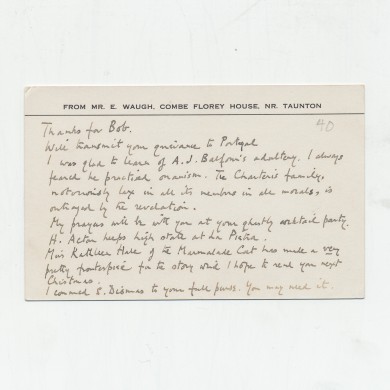 FROM MR. E. WAUGH, COMBE FLOREY HOUSE, NR. TAUNTON
40
Thanks for Bob.
Will transmit your grievance to Portugal
I was glad to learn of A.J. Balfour's adultery. I always
feared he practised onanism. The Charteris family,
notoriously lax in all its members in all morals, is
outraged by the revelation.
My prayers will be with you at your ghostly cocktail party.
H. Acton keeps high state at La Pietra.
Miss Kathleen Hale of the Marmalade Cat has made a very
pretty frontispiece for the story which I hope to send you next
Christmas.
I commend S. Dismas to your full pures. You may need it.